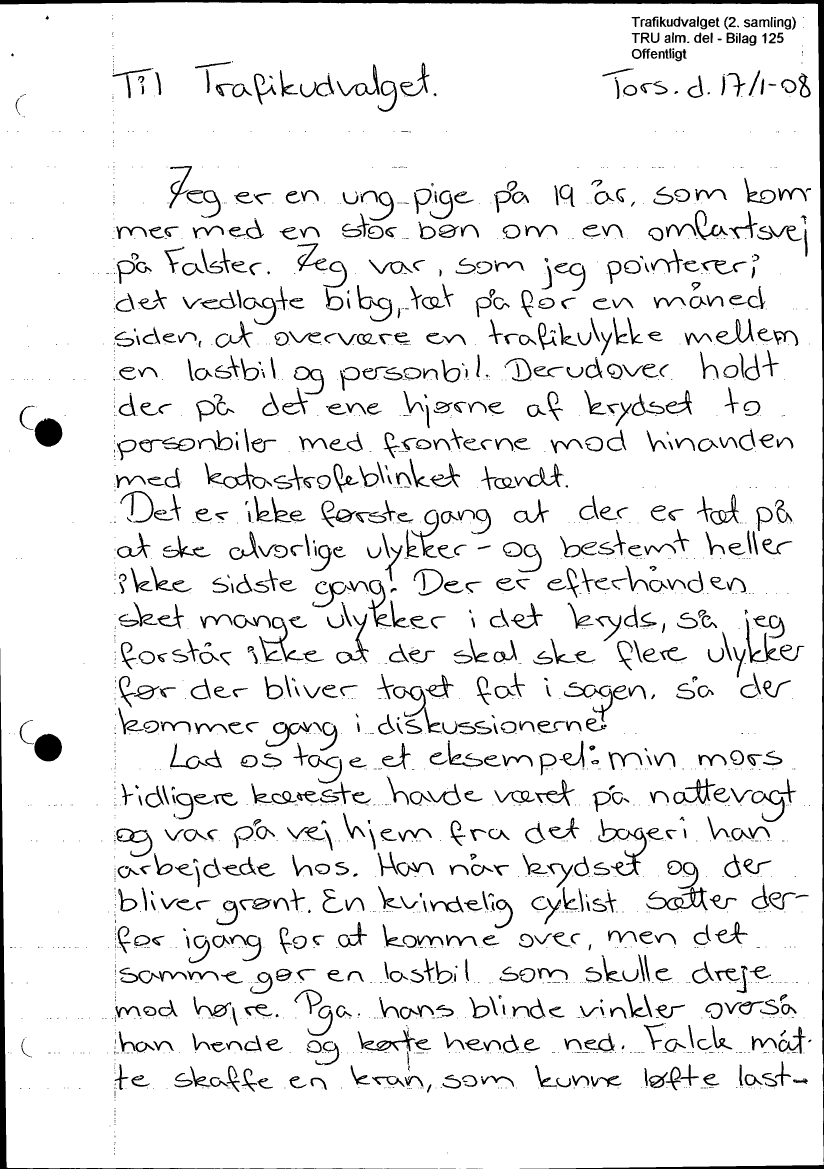 Trafikudvalget (2. samling)
TRU alm. del - Bilag 125
Offentligt
Til Trafikudvalget. Tors. d. 17/1-08
Jeg er en ung pige på 19 år, som kom-
mer med en stor bøn om en omfartsvej
på Falster. Jeg var, som jeg pointerer i
det vedlagte bilag, tæt på for en måned
siden, at overvære en trafikulykke mellem
en lastbil og personbil. Derudover holdt
der på det ene hjørne af krydset to
personbiler med fronterne mod hinanden
med katastrofeblinket tændt.
Det er ikke første gang at der er tæt på
at ske alvorlige ulykker - og bestemt heller
ikke sidste gang! Der er efterhånden
sket mange ulykker i det kryds, så jeg
forstår ikke at der skal ske flere ulykker
før der bliver taget fat i sagen, så der
kommer gang i diskussionerne!
Lad os tage et eksempel: min mors
tidligere kæreste havde været på nattevagt
og var på vej hjem fra det bageri han
arbejdede hos. Han når krydset og der
bliver grønt. En kvindelig cyklist sætter der-
for igang for at komme over, men det
samme gør en lastbil som skulle dreje
mod højre. Pga. hans blinde vinkler overså
han hende og kørte hende ned. Falck måt-
te skaffe en kran, som kunne løfte last-